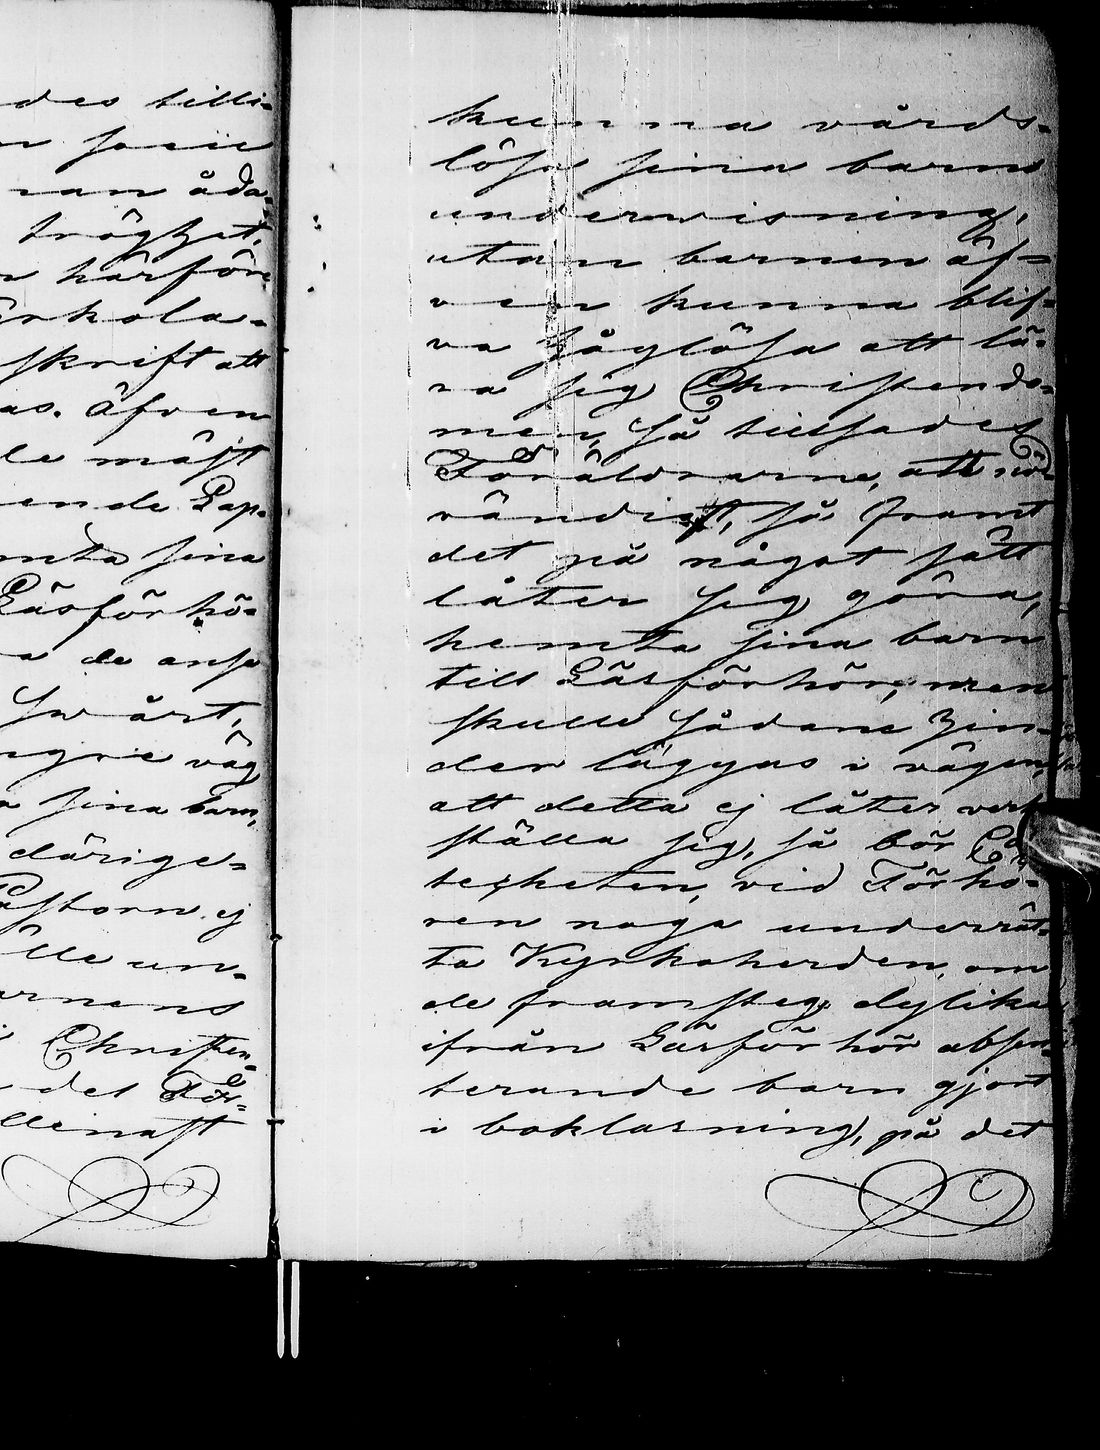 des tilli-
n socie
nan åda-
tröghet,
n härföre
örkola-
skrift att
as. Äfven
le måst
ende Lap-
mta sina
Läsförhö-
a de anse
swårt,
ngre väg
a sina barn,
därige-
Pastorn ej
ille un-
arnens
i Christen-
det För-
llenast
kunna vårds-
lösa sina barns
underwisning,
utan barnen äf-
ven kunna blif-
va håglösa att lä-
ra sig Christendo-
men, så tillsades
Föräldrarne, att nöd-
vändigt, så framt
det på något sätt
låter sig göra,
hemta sina barn
till Läsförhör, men
skulle sådane hin-
der läggas i vägen,
att detta ej låter verk-
ställa sig, så bör
techeten, vid Förhö-
ren noga underrät-
ta Kyrkoherden, om
de framsteg dylika
ifrån Läsförhör absen-
terande barn gjort
i bokläsning, på det